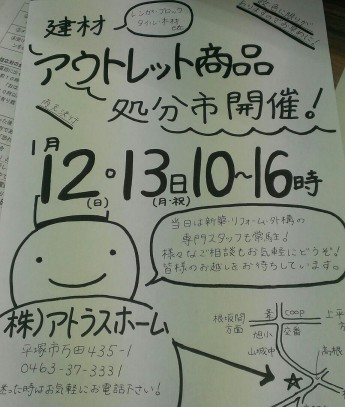 建材
レンガ・ブロック
タイル・木材
etc
アウトレット商品
処分市開催!
1月
12・13日 10~16時
(日)
(月・祝)
当日は新築・リフォーム・外構の
専門スタッフも常駐!
様々なご相談もお気軽にどうぞ!
皆様のお越しをお待ちしています。
(株)アトラスホーム
平塚市万田435-1
0463-37-3331
迷った時はお気軽にお電話下さい!
根坂間
方面
coop
上平
旭小
交番
山城中
高根